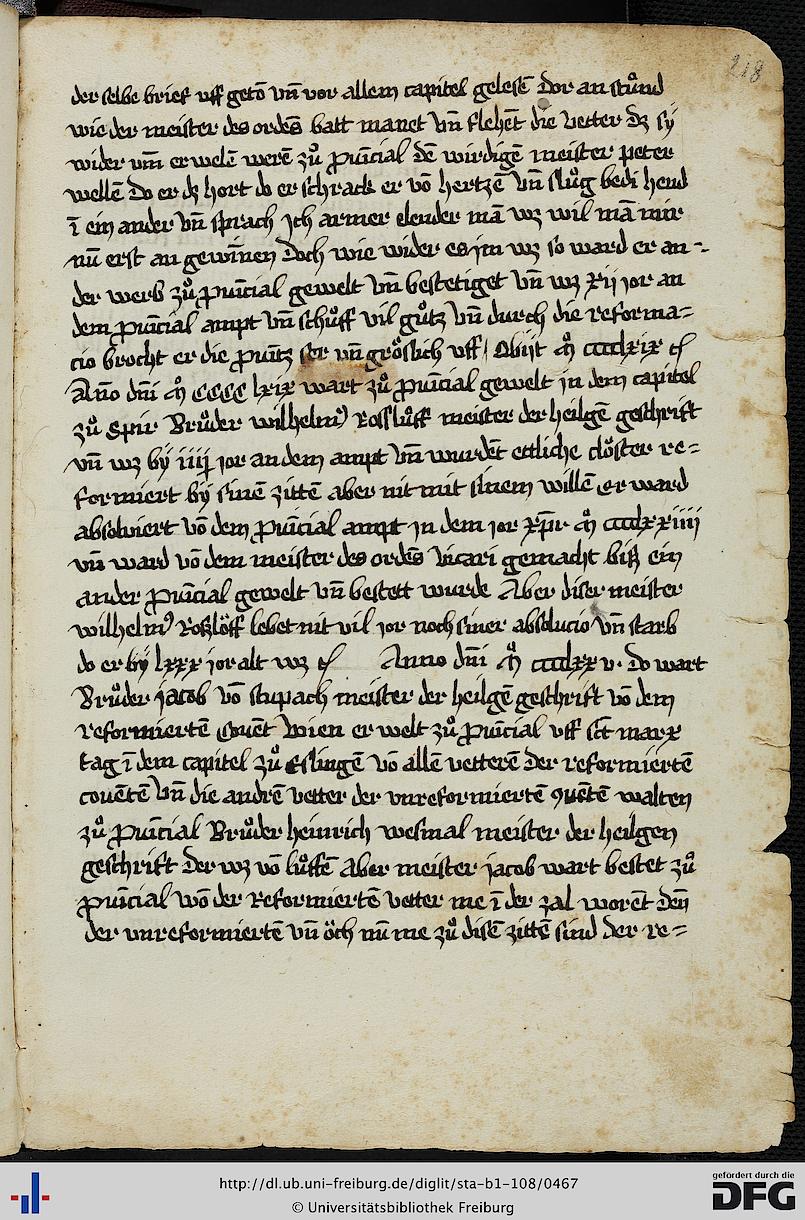 218
der selbe brief vff getō vn̄ vor allem capitel gelesē Dor an stůnd
wie der meister des ordēs batt manet vn̄ flehēt die vetter dz sÿ
wider vm̄ erwelē werē zů pruīcial dē wirdigē meister peter
wellē Do er dz hort do erschrack er vō hertzē vn̄ slůg bedi hend
ī ein ander vn̄ sprach Jch armer elender mā wz wil mā mir
nū erst an gewīnen Doch wie wider es jm wz so ward er an-
der werb zů pruīcial gewelt vn̄ bestetiget vn̄ wz xii jor an
dem pruīcial ampt vn̄ schůff vil gůtz vn̄ durch die reforma=
cio brocht er die pruītz ser vn̄ gröslich vff / Obijt M cccclxix
An̄o dn̄i M CCCC lxix wart zů pruīcial gewelt in dem capitel
zů Spir Brůder wilhelmꝰ Rosslůff meister der heilgē geschrift
vn̄ wz bÿ iiij jor an dem ampt vn̄ wurdēt ettliche clöster re=
formiert bÿ sinē zittē aber nit mit sinem willē Er ward
absolviert vō dem pruīcial ampt jn dem jor xp̄i M cccclxxiiii
vn̄ ward vō dem meister des ordēs vicari gemacht biß ein
ander pruīcial gewelt vn̄ bestett wurde Aber diser meister
wilhelmꝰ Roßlöff lebet nit vil jor noch siner absolucio vn̄ starb
do er bÿ lxxx jor alt wz Anno dn̄i M cccclxxv. Do wart
Brůder jacob vō stupach meister der heilgē geschrift vō dem
reformiertē covēt wien erwelt zů pruīcial vff sc̄t marx
tag ī dem capitel zů Eslingē vō allē vetterē der reformiertē
covētē vn̄ die andrē vetter der vnreformiertē ꝯuētē walten
zů pruīcial Brůder heinrich wesmal meister der heilgen
geschrift der wz vō lůffē Aber meister jacob wart bestet zů
pruīcial wō der reformiertē vetter me ī der zal worēt dēn
der vnreformiertē vn̄ öch nū me zů disē zittē sind der re=
http://dl.ub.uni-freiburg.de/diglit/sta-b1-108/0467
© Universitätsbibliothek Freiburg
gefördert durch die
DFG